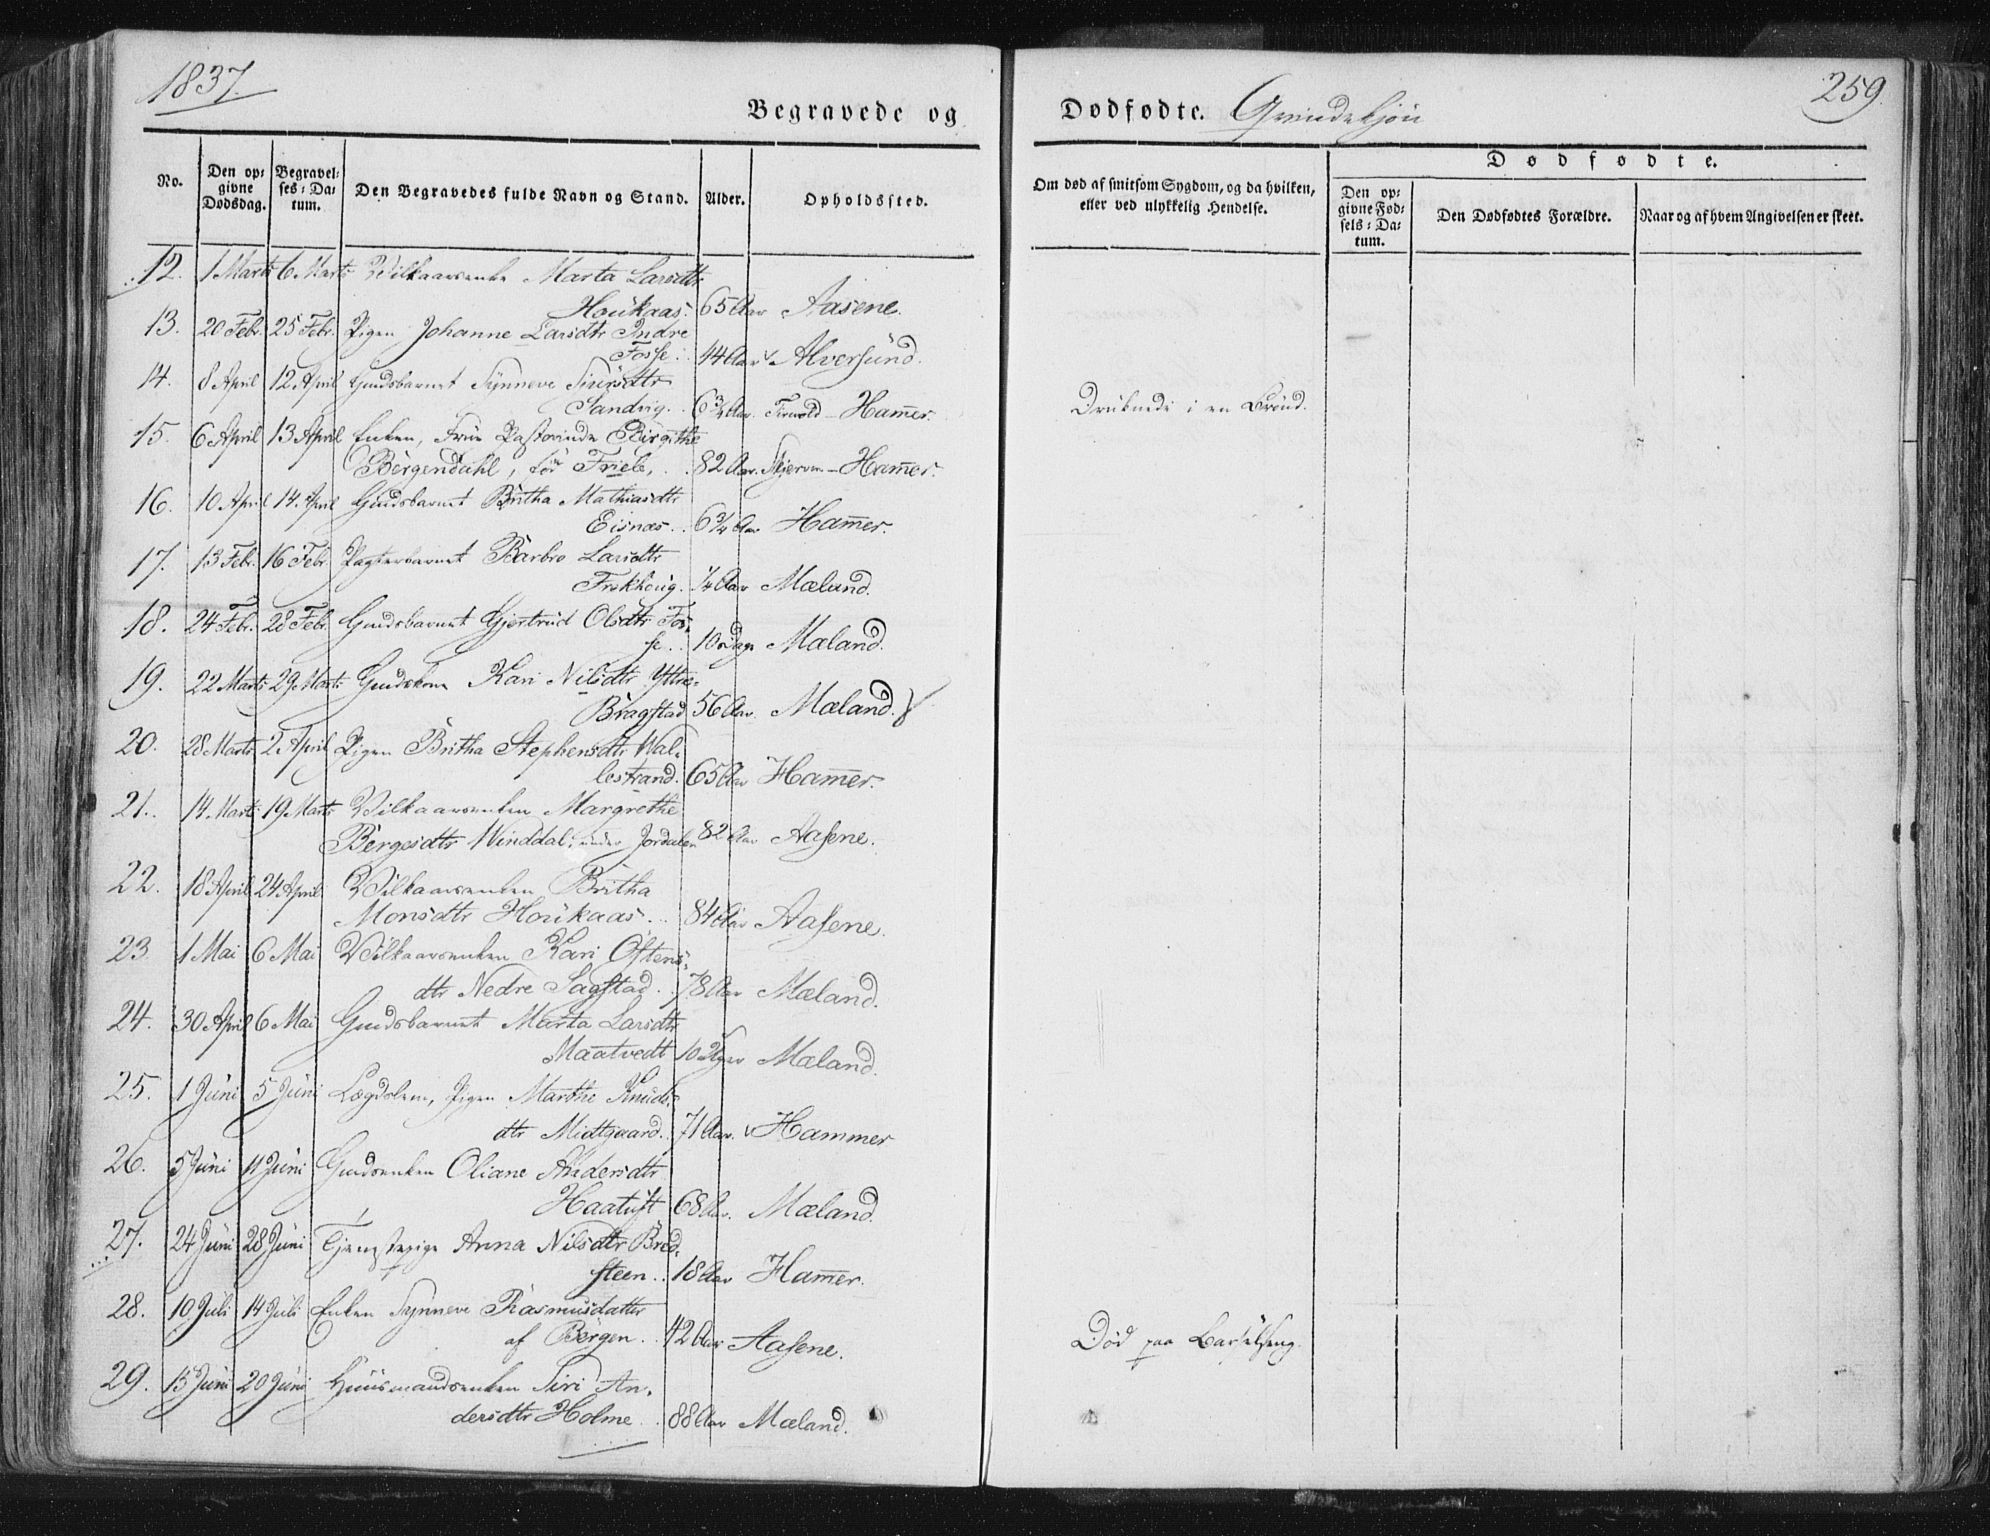 1837.
259.
Begravede og Dødfødte. Qvindekjön
No.
Den opgivne Dødsdag.
Begravelses-Datum.
Den Begravedes fulde Navn og Stand.
Alder.
Opholdssted.
Om død af smitsom Sygdom, og da hvilken, eller ved ulykkelig Hendelse.
Dødfødte.
Den opgivne Fødsels-Datum.
Den Dødfødtes Forældre.
Naar og af hvem Angivelsen er skeet.
12. 1 Marts 6 Marts Vilkaarsenke Marta Larsdtr
Houkaas. 65 Aar Aasene.
13. 20 Febr. 25 Febr. Pigen Johanne Larsdtr Indre
Fosse. 44 Aar Alversund.
14. 8 April 12 April Gaudsbarnet Synneve Siursdtr
Sandvig. 6 3/4 Aar. Hamer. Druknede i en Brönd.
15. 6 April 13 April Enken, Frue Pastorinde Birgithe
Börgendahl, för Friele, 82 Aar. Hamer.
16. 10 April 14 April Gaudsbarnet Britha Mathiasdtr
Eisnæs. 6 3/4 Aar Hamer.
17. 13 Febr. 16 Febr. Pagterbarnet Barbro Larsdtr
Frokhoug. 1/4 Aar Mæland.
18. 24 Febr. 28 Febr. Gaudsbarnet Gjertrud Olsdtr Fos-
se. 10 Dage Mæland.
19. 22 Marts 29 Marts Gaudskone Kari Nilsdtr Yttre-
Bragstad 56 Aar. Mæland.
20. 28 Marts 2 April Pigen Britha Stephensdtr Wal-
lestrand. 65 Aar Hamer.
21. 14 Marts 19 Marts Vilkaarsenken Margrethe
Börgesdtr Winddal, under Jordalen 82 Aar Aasene.
22. 18 April 24 April Vilkaarsenken Britha
Monsdtr Houkaas. 84 Aar Aasene.
23. 1 Mai 6 Mai Vilkaarsenken Kari Östens-
dtr Nedre Sagstad. 78 Aar Mæland.
24. 30 April 6 Mai Gaudsbarnet Marta Larsdtr
Maatvedt 10 Uger Mæland.
25. 1 Juni 5 Juni Lægdslem, Pigen Marthe Knuds-
dtr Midtgaard. 71 Aar. Hammer
26. 5 Juni 11 Juni Gaudsenken Oliane Andersdtr
Haatuft 68 Aar. Mæland.
27. 24 Juni 28 Juni Tjenestepige Anna Nilsdtr Bred-
steen. 18 Aar Hamer.
28. 10 Juli 14 Juli Enken Synneve Rasmusdatter
af Bergen. 42 Aar Aasene. Död paa Barselseng.
29. 15 Juni 20 Juni Huusmandsenken Siri An-
dersdtr Holme. 88 Aar Mæland.